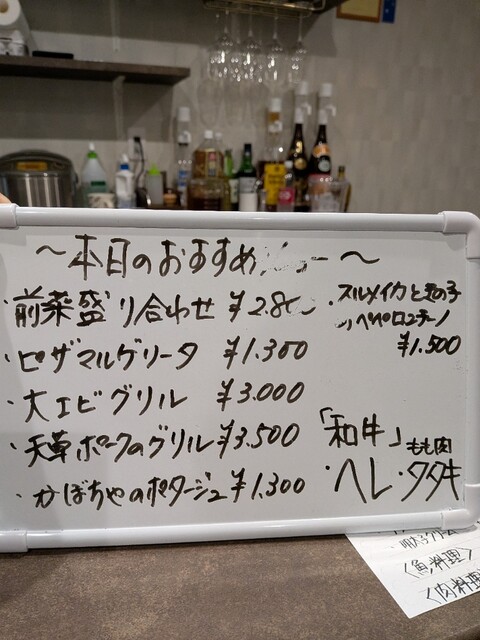 〜本日のおすすめメニュー〜
・前菜盛り合わせ ¥2.800
・ピザマルゲリータ ¥1.300
・大エビグリル ¥3.000
・天草ポークのグリル ¥3.500
・かぼちゃのポタージュ ¥1.300
・スルメイカときの子
のペペロンチーノ
¥1.500
「和牛」もも肉
・ヘレ・タタキ
〈魚料理〉
〈肉料理〉